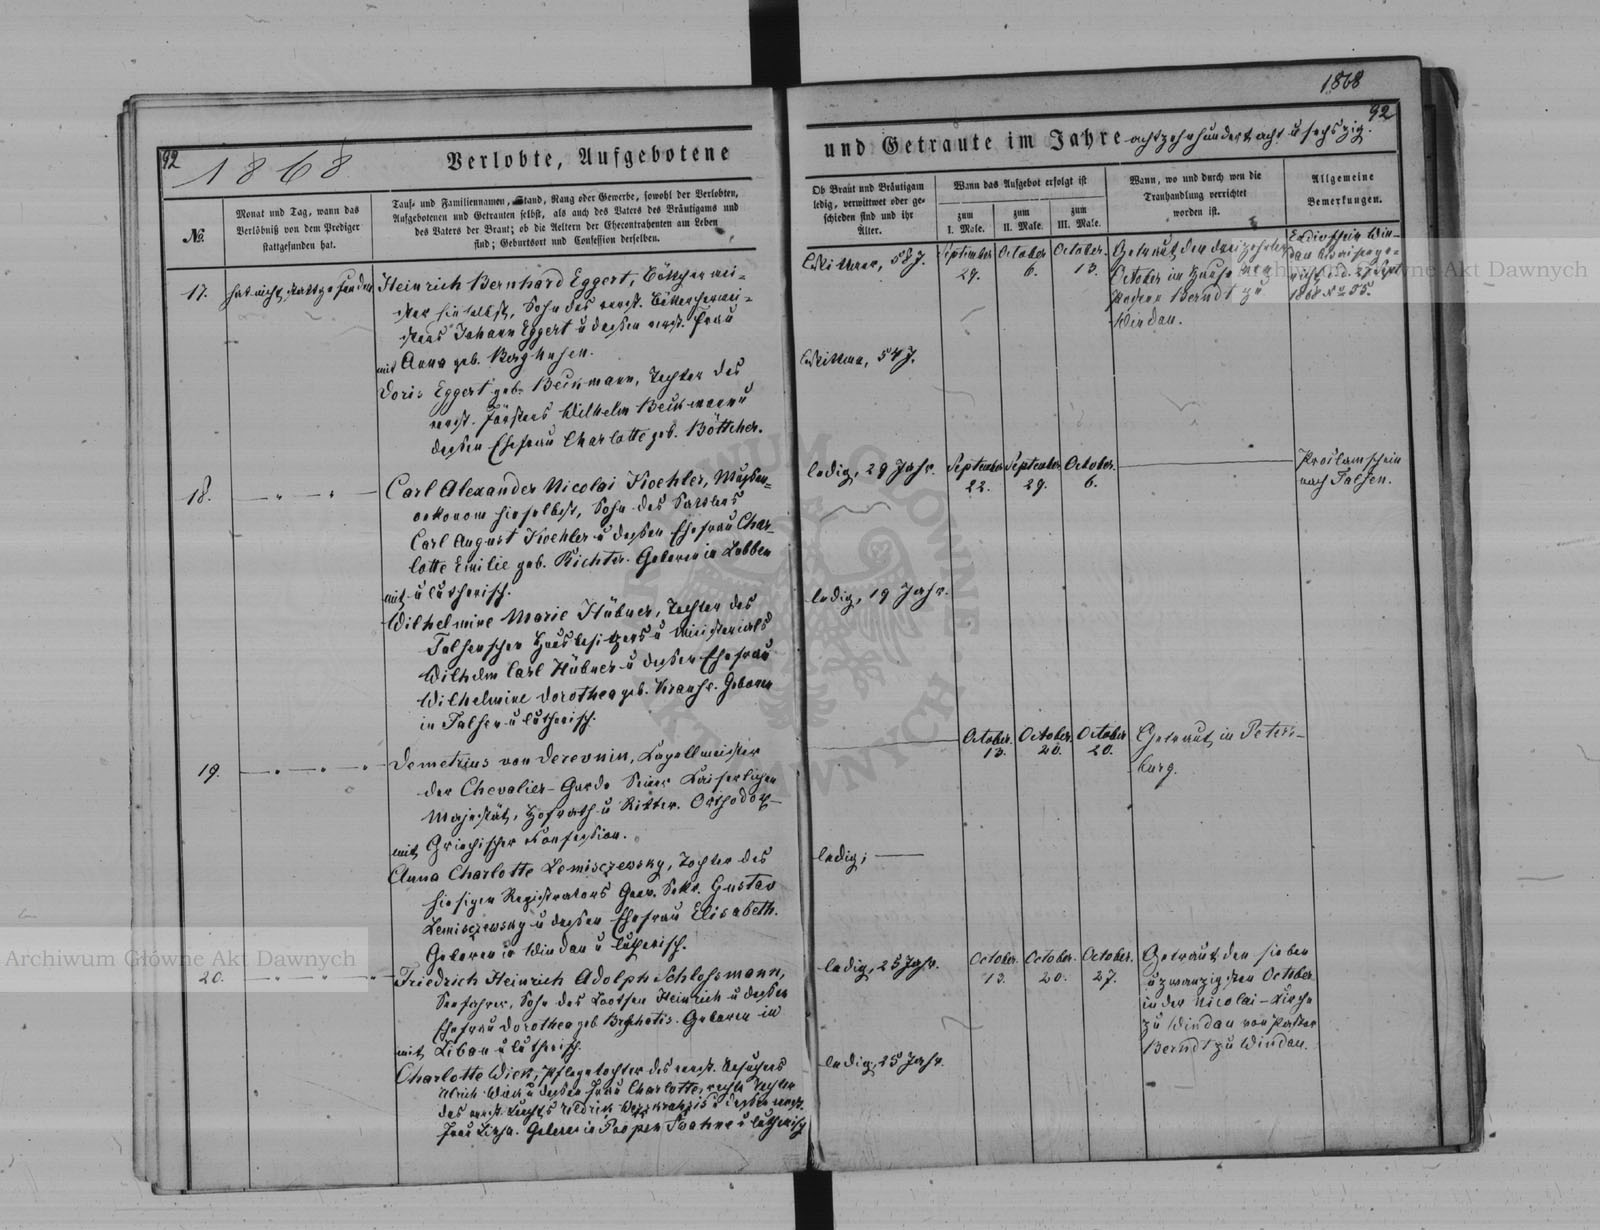 1868
92
92
1868
Verlobte, Aufgebotene
und Getraute im Jahre achtzehnhundert acht u sechszig.
№.
Monat und Tag, wann das
Verlöbniß von dem Prediger
stattgefunden hat.
Tauf- und Familiennamen, Stand, Rang oder Gewerbe, sowohl der Verlobten,
Aufgebotenen und Getrauten selbst, als auch des Vaters des Bräutigams und
des Vaters der Braut; ob die Aeltern der Ehecontrahenten am Leben
sind; Geburtsort und Confession derselben.
Ob Braut und Bräutigam
ledig, verwittwet oder ge-
schieden sind und ihr
Alter.
Wann das Aufgebot erfolgt ist
zum
I. Male.
zum
II. Male.
zum
III. Male.
Wann, wo und durch wen die
Trauhandlung verrichtet
worden ist.
Allgemeine
Bemerkungen.
17.
hat nicht stattgefunden
Heinrich Bernhard Eggert, Böttchermei-
ster hieselbst, Sohn des verst. Böttchermei-
sters Johann Eggert u dessen verst. Frau
Anna geb. Berghusen.
mit
Doris Eggert geb. Beckmann, Tochter des
verst. Försters Wilhelm Beckmann u
dessen Ehefrau Charlotte geb. Böttcher.
Wittwer, 58 J.
Wittwe, 54 J.
September
29.
October
6.
October
13.
Getraut den dreizehnten
October im Hause von
Pastor Berndt zu
Windau.
1868 № 55.
18.
Carl Alexander Nicolai Koehler,
oekonom hieselbst, Sohn des Sattlers
Carl August Koehler u dessen Ehefrau Char-
lotte Emilie geb. Richter. Geboren in Labben
u lutherisch.
mit
Wilhelmine Marie Hübner, Tochter des
Talsenschen Hausbesitzers u Ministerials
Wilhelm Carl Hübner u dessen Ehefrau
Wilhelmine Dorothea geb. Krause. Geboren
in Talsen u lutherisch.
ledig, 29 Jahr.
ledig, 19 Jahr.
September
22.
September
29.
October.
6.
Proclamschein
nach Talsen.
19.
Demetrius von Derevnin, Kapellmeister
der Chevalier-Garde Seiner Kaiserlichen
Majestät, Hofrath u Ritter. Orthodox-
Griechischer Confession.
mit
Anna Charlotte Lemisczewsky, Tochter des
hiesigen Registrators Gouv. Sekr. Gustav
Lemisczewsky u dessen Ehefrau Elisabeth.
Geboren in Windau u lutherisch.
ledig;
October.
13.
October.
20.
October
20.
Getraut in Peters-
burg.
20.
Friedrich Heinrich Adolph Schlossmann,
Seefahrer, Sohn des Lootsen Heinrich u dessen
Ehefrau Dorothea geb. Geboren in
Libau u lutherisch.
mit
Charlotte Wick, Pflegetochter des verst.
Ulrich Wick u dessen Frau Charlotte, rechte Tochter
des verst. Knechts u dessen verst.
Frau Lisa. Geboren in u lutherisch
ledig, 25 Jahr.
ledig, 25 Jahr.
October.
13.
October.
20.
October.
27.
Getraut den sieben
u zwanzigsten October
in der Nicolai-Kirche
zu Windau von Pastor
Berndt zu Windau.
Archiwum Główne Akt Dawnych
Archiwum Główne Akt Dawnych
ARCHIWUM GŁÓWNE AKT DAWNYCH